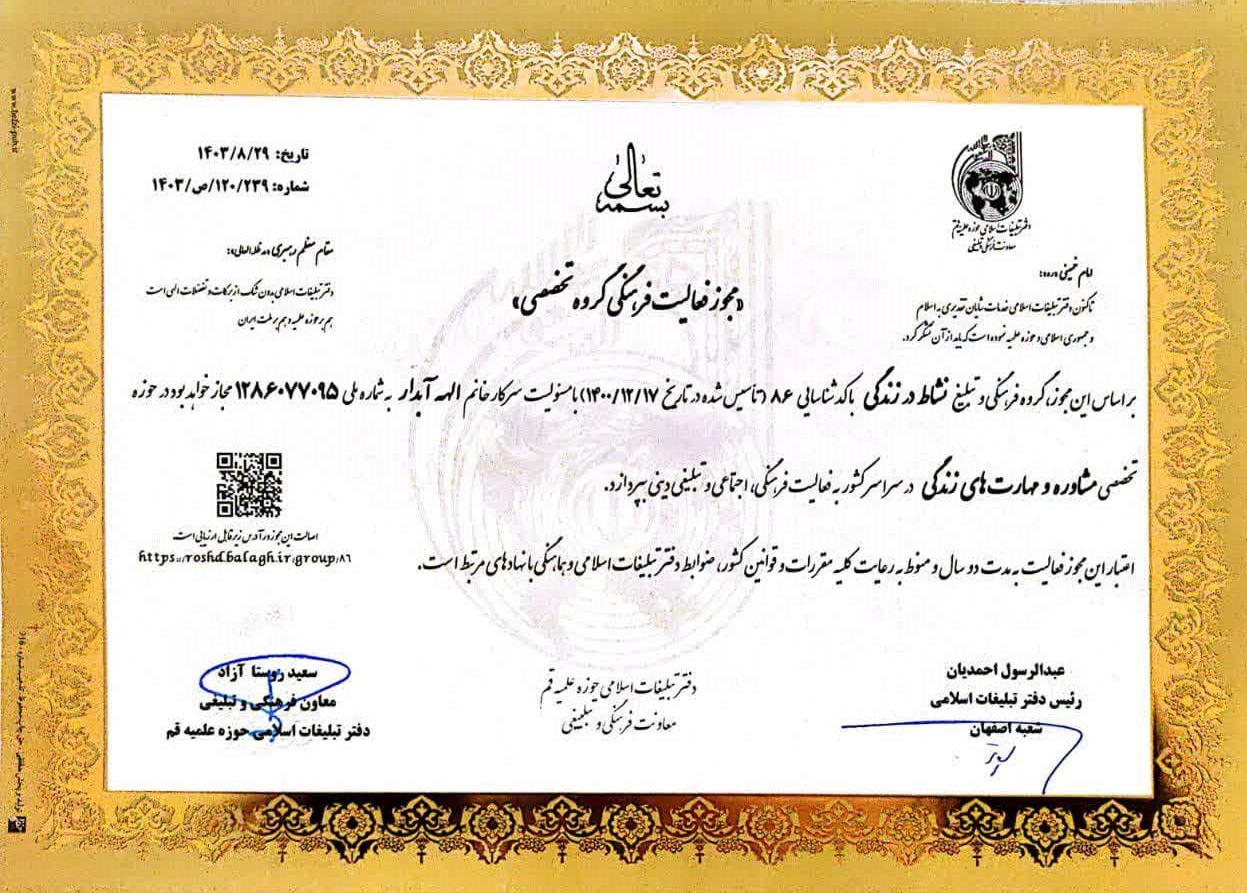 بسمه تعالی
دفتر تبلیغات اسلامی حوزه علمیه قم
معاونت فرهنگی و تبلیغی
تاریخ: ۱۴۰۳/۸/۲۹
شماره: ۱۲۰/۲۳۹/ص/۱۴۰۳
امام خمینی «ره»:
تاکنون دفتر تبلیغات اسلامی خدمات شایان تقدیری به اسلام
و جمهوری اسلامی و حوزه علمیه نموده است که باید از آن تشکر کرد.
مقام معظم رهبری «مدظله‌العالی»:
دفتر تبلیغات اسلامی بدون شک از برکات و تفضلات الهی است
هم بر حوزه علمیه و هم بر ملت ایران
«مجوز فعالیت فرهنگی گروه تخصصی»
بر اساس این مجوز، گروه فرهنگی و تبلیغ نشاط در زندگی با کد شناسایی ۸۶ (تأسیس شده در تاریخ ۱۴۰۰/۱۲/۱۷) با مسئولیت سرکار خانم الهه آبدار به شماره ملی ۱۲۸۶۰۷۷۰۹۵ مجاز خواهد بود در حوزه
تخصصی مشاوره و مهارت های زندگی در سراسر کشور به فعالیت فرهنگی، اجتماعی و تبلیغی دینی بپردازد.
اصالت این مجوز در آدرس زیر قابل ارزیابی است.
https://roshd.balagh.ir/group/۸۶
اعتبار این مجوز فعالیت به مدت دو سال و منوط به رعایت کلیه مقررات و قوانین کشور، ضوابط دفتر تبلیغات اسلامی و هماهنگی با نهادهای مرتبط است.
عبدالرسول احمدیان
رئیس دفتر تبلیغات اسلامی
شعبه اصفهان
دفتر تبلیغات اسلامی حوزه علمیه قم
معاونت فرهنگی و تبلیغی
سعید روستا آزاد
معاون فرهنگی و تبلیغی
دفتر تبلیغات اسلامی حوزه علمیه قم